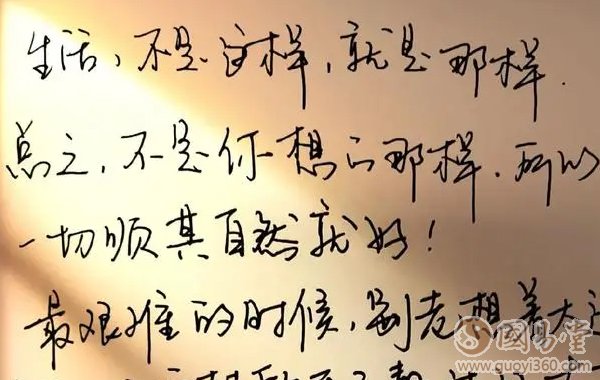 生活，不是这样，就是那样.
总之，不是你想的那样．所以
一切顺其自然就好！
最艰难的时候，别老想着太远
國易堂
www.guoyi360.com